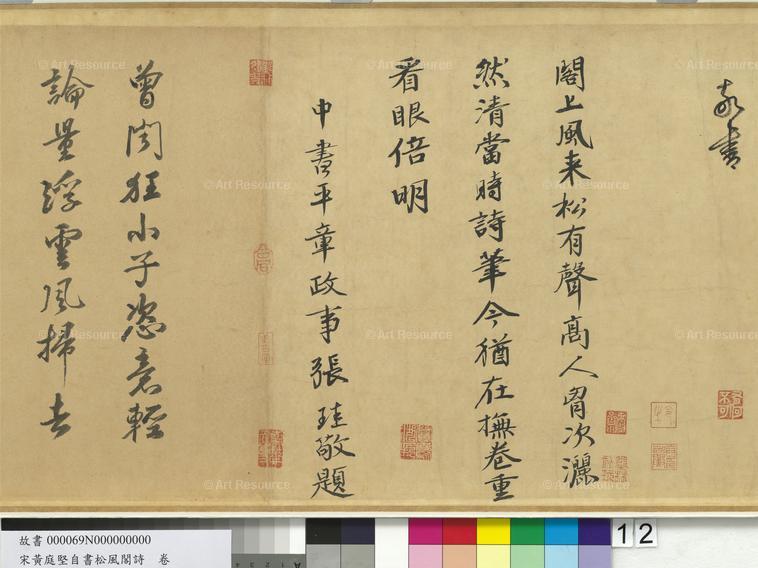 敬書
閣上風来松有聲髙人胷次灑
然清當時詩筆今猶在撫卷重
看眼倍明
中書平章政事張珪敬題
曾聞狂小子恣意輕
論量浮雲風掃去
故書 000069N000000000
宋黃庭堅自書松風閣詩 卷
12
© Art Resource